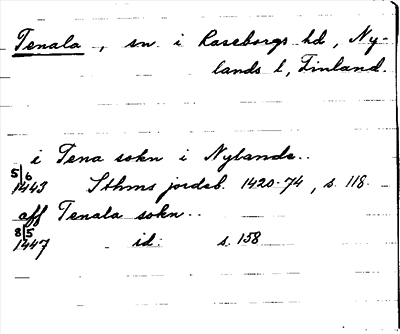 Tenala, sn. i Raseborgs hd, Ny-
lands l, Finland.
i Tena sokn i Nylande..
5/6
1443 Sthms jordeb. 1420-74, s. 118.
aff Tenala sokn..
8/5
1447 id: s. 158